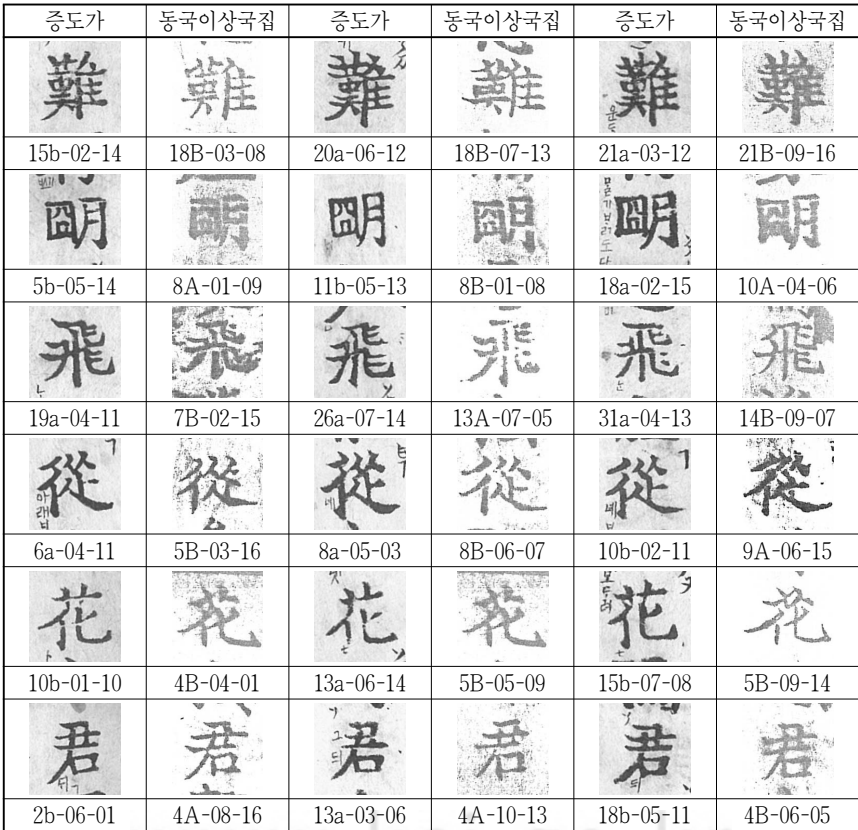 증도가 동국이상국집 증도가 동국이상국집 증도가 동국이상국집
難 難 難 難 難 難
15b-02-14 18B-03-08 20a-06-12 18B-07-13 21a-03-12 21B-09-16
明 明 明 明 明 明
5b-05-14 8A-01-09 11b-05-13 8B-01-08 18a-02-15 10A-04-06
飛 飛 飛 飛 飛 飛
19a-04-11 7B-02-15 26a-07-14 13A-07-05 31a-04-13 14B-09-07
從 從 從 從 從 從
6a-04-11 5B-03-16 8a-05-03 8B-06-07 10b-02-11 9A-06-15
花 花 花 花 花 花
10b-01-10 4B-04-01 13a-06-14 5B-05-09 15b-07-08 5B-09-14
君 君 君 君 君 君
2b-06-01 4A-08-16 13a-03-06 4A-10-13 18b-05-11 4B-06-05